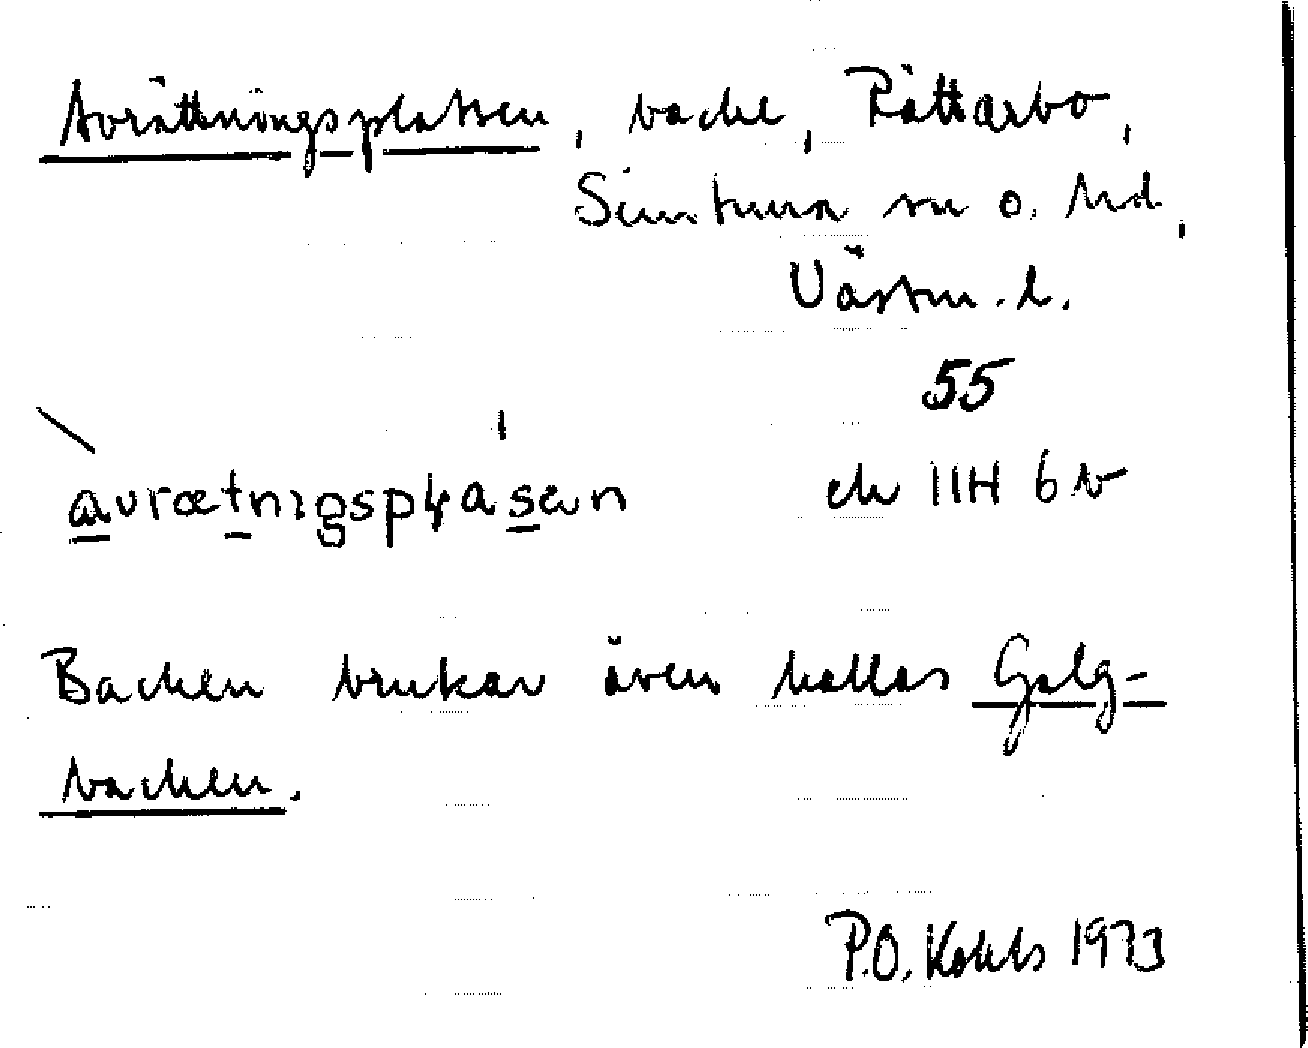 Avrättningsplatsen, backe, Råttarbo,
Simtuna sn o. hd,
Västm. l.
55
ek 11H 6 b
avrætnıgsplasen
Backen brukar även kallas Galg-
backen.
P.O. 1973